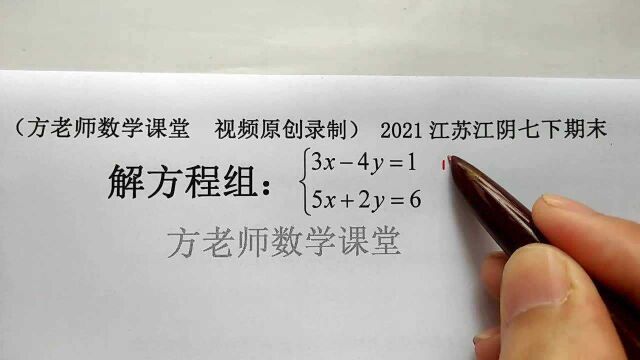 （方老师数学课堂 视频原创录制） 2021江苏江阴七下期末
解方程组：
3x−4y=1
5x+2y=6
方老师数学课堂